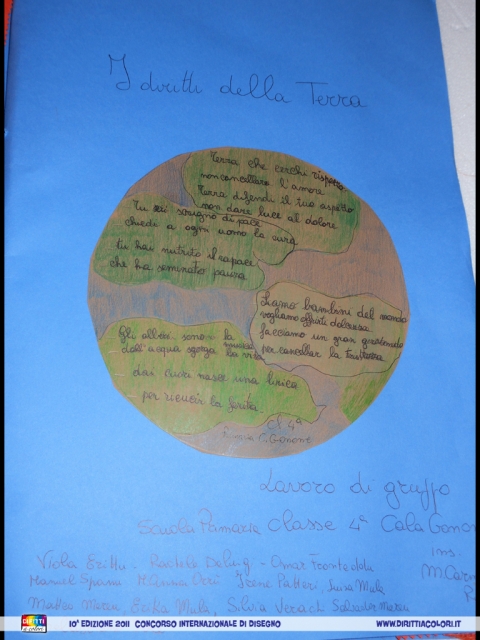 I diritti della Terra
Terra che cerchi rispetto
non cancellare l'amore
Terra difendi il tuo aspetto
non dare luce al dolore
Tu sei sovrano di pace
chiedi a ogni uomo la cura
tu hai nutrito il rapace
che ha seminato paura
Siamo bambini del mondo
vogliamo offrirti dolcezza
facciamo un gran girotondo
per cancellar la tristezza
Gli alberi sono la
dall'acqua sgorga la vita
dai cuori nasce una lirica
per ricucir la ferita.
Cl 4ª
Lavoro di gruppo
Scuola Primaria classe 4ª Cala Gono
ins.
Viola Erittu - Rachele Delvig - Omar Frontedda
Manuel Spanu Irene Patteri, Luisa Mula
Matteo Mereu, Erika Mula, Silvia Salvatore Mereu
DIRITTI
10ª EDIZIONE 2011 CONCORSO INTERNAZIONALE DI DISEGNO
WWW.DIRITTIACOLORI.IT